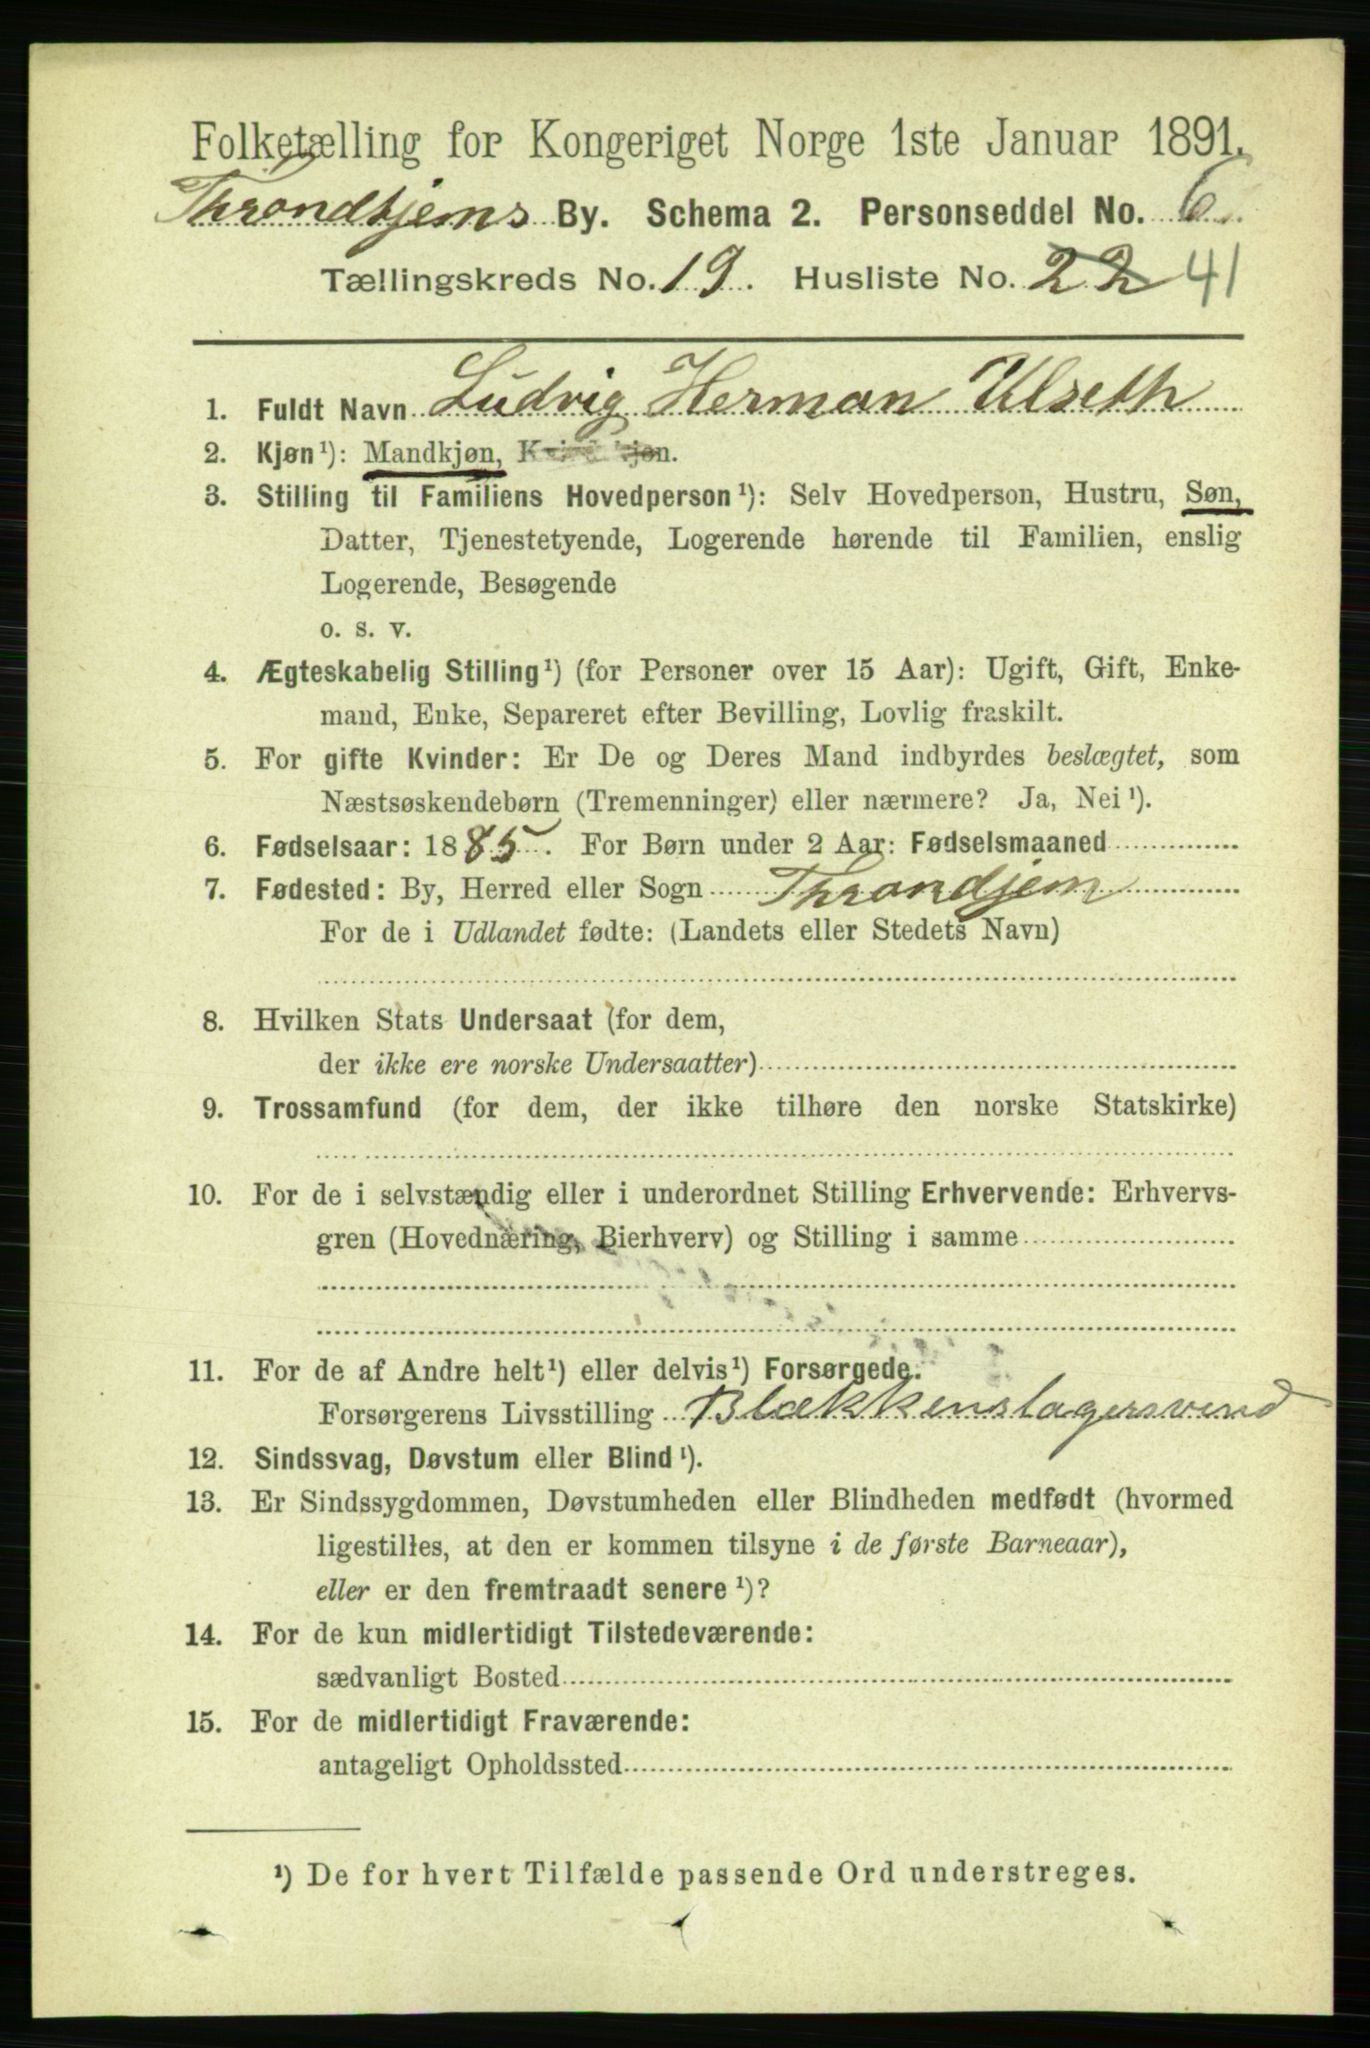 Folketælling for Kongeriget Norge 1ste Januar 1891.
Throndhjems By. Schema 2. Personseddel No. 6
Tællingskreds No. 19. Husliste No. 22 41
1. Fuldt Navn Ludvig Herman Ulseth
2. Kjøn¹): Mandkjøn, Kvindekjøn.
3. Stilling til Familiens Hovedperson¹): Selv Hovedperson, Hustru, Søn,
Datter, Tjenestetyende, Logerende hørende til Familien, enslig
Logerende, Besøgende
o. s. v.
4. Ægteskabelig Stilling¹) (for Personer over 15 Aar): Ugift, Gift, Enke-
mand, Enke, Separeret efter Bevilling, Lovlig fraskilt.
5. For gifte Kvinder: Er De og Deres Mand indbyrdes beslægtet, som
Næstsøskendebørn (Tremenninger) eller nærmere? Ja, Nei¹).
6. Fødselsaar: 1885. For Børn under 2 Aar: Fødselsmaaned
7. Fødested: By, Herred eller Sogn Throndjem
For de i Udlandet fødte: (Landets eller Stedets Navn)
8. Hvilken Stats Undersaat (for dem,
der ikke ere norske Undersaatter)
9. Trossamfund (for dem, der ikke tilhøre den norske Statskirke)
10. For de i selvstændig eller i underordnet Stilling Erhvervende: Erhvervs-
gren (Hovednæring, Bierhverv) og Stilling i samme
11. For de af Andre helt¹) eller delvis¹) Forsørgede.
Forsørgerens Livsstilling Blækkenslagersvend
12. Sindssvag, Døvstum eller Blind¹).
13. Er Sindssygdommen, Døvstumheden eller Blindheden medfødt (hvormed
ligestilles, at den er kommen tilsyne i de første Barneaar),
eller er den fremtraadt senere¹)?
14. For de kun midlertidigt Tilstedeværende:
sædvanligt Bosted
15. For de midlertidigt Fraværende:
antageligt Opholdssted
¹) De for hvert Tilfælde passende Ord understreges.